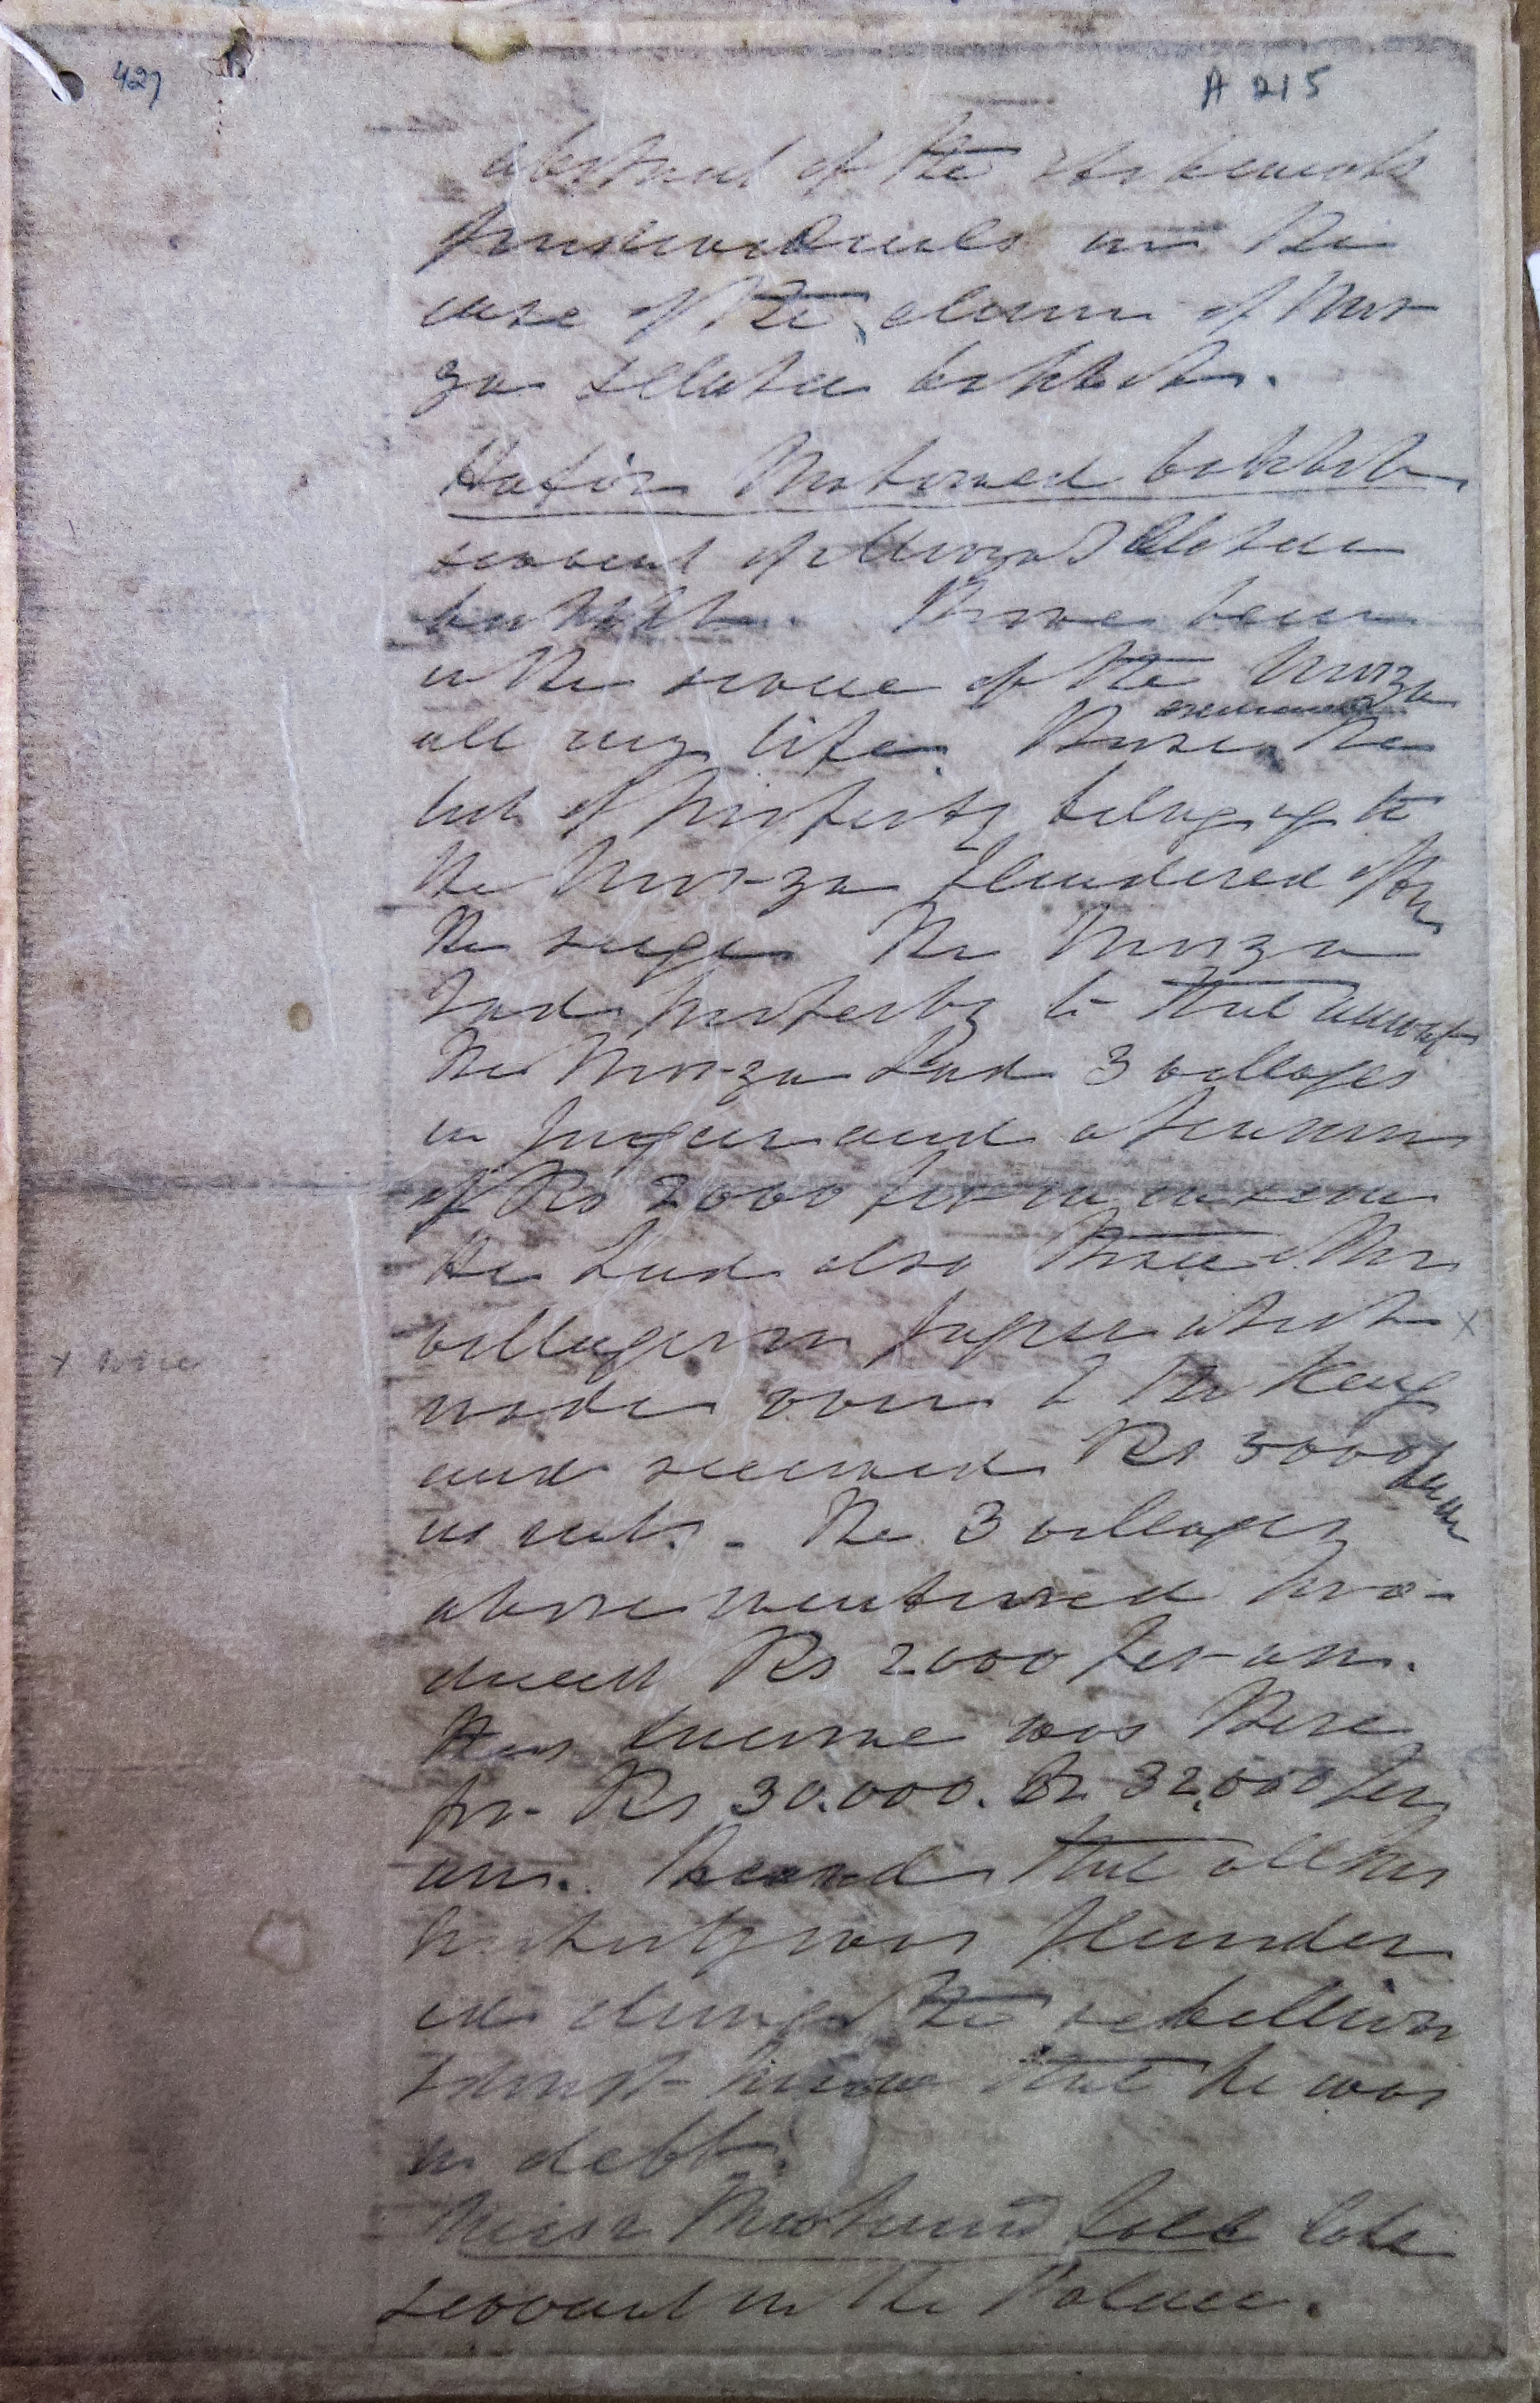 427
A 215
abstract of the statements
in the
case of the claim of Mir
za Ellahee bukhsh.
Hafiz Mahomed bukhsh
servant of Mirza Ellahee
bukhsh. I have been
in the service of the Mirza
all my life. I have the
list of property belonging to
the Mirza plundered after
the siege. The Mirza
had property to that amount
The Mirza had 3 villages
in Jageer and a
of Rs 2000 per
He had also three other
villages in Jageer which x
x were
made over to the King
and received Rs 3000 per
The 3 villages
above mentioned pro-
duced Rs 2000 per an.
His income was there
for Rs 30.000. to 32.000 per
ann. I heard that all his
property was plunder
ed during the rebellion
I don't know that he was
in debt.
Mirza Mahomed late
servant in the Palace.